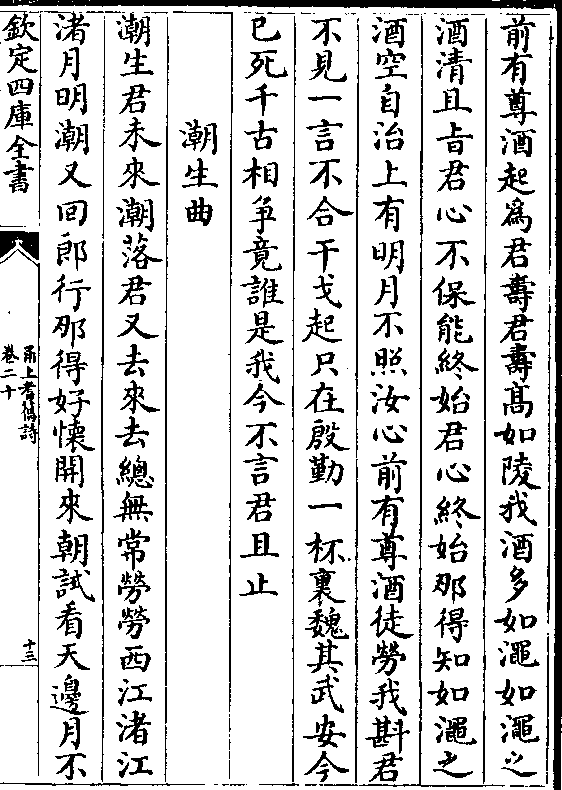 前有尊酒起爲君壽君壽髙如陵我酒多如澠如澠之
酒清且㫖君心不保能終始君心終始那得知如澠之
酒空自治上有明月不照汝心前有尊酒徒勞我斟君
不見一言不合干戈起只在殷勤一杯裏魏其武安今
已死千古相争竟誰是我今不言君且止
潮生曲
潮生君未來潮落君又去來去總無常勞勞西江渚江
渚月明潮又回郎行那得好懷開來朝試看天邊月不
欽定四庫全書
甬上耆舊詩
卷二十
十三